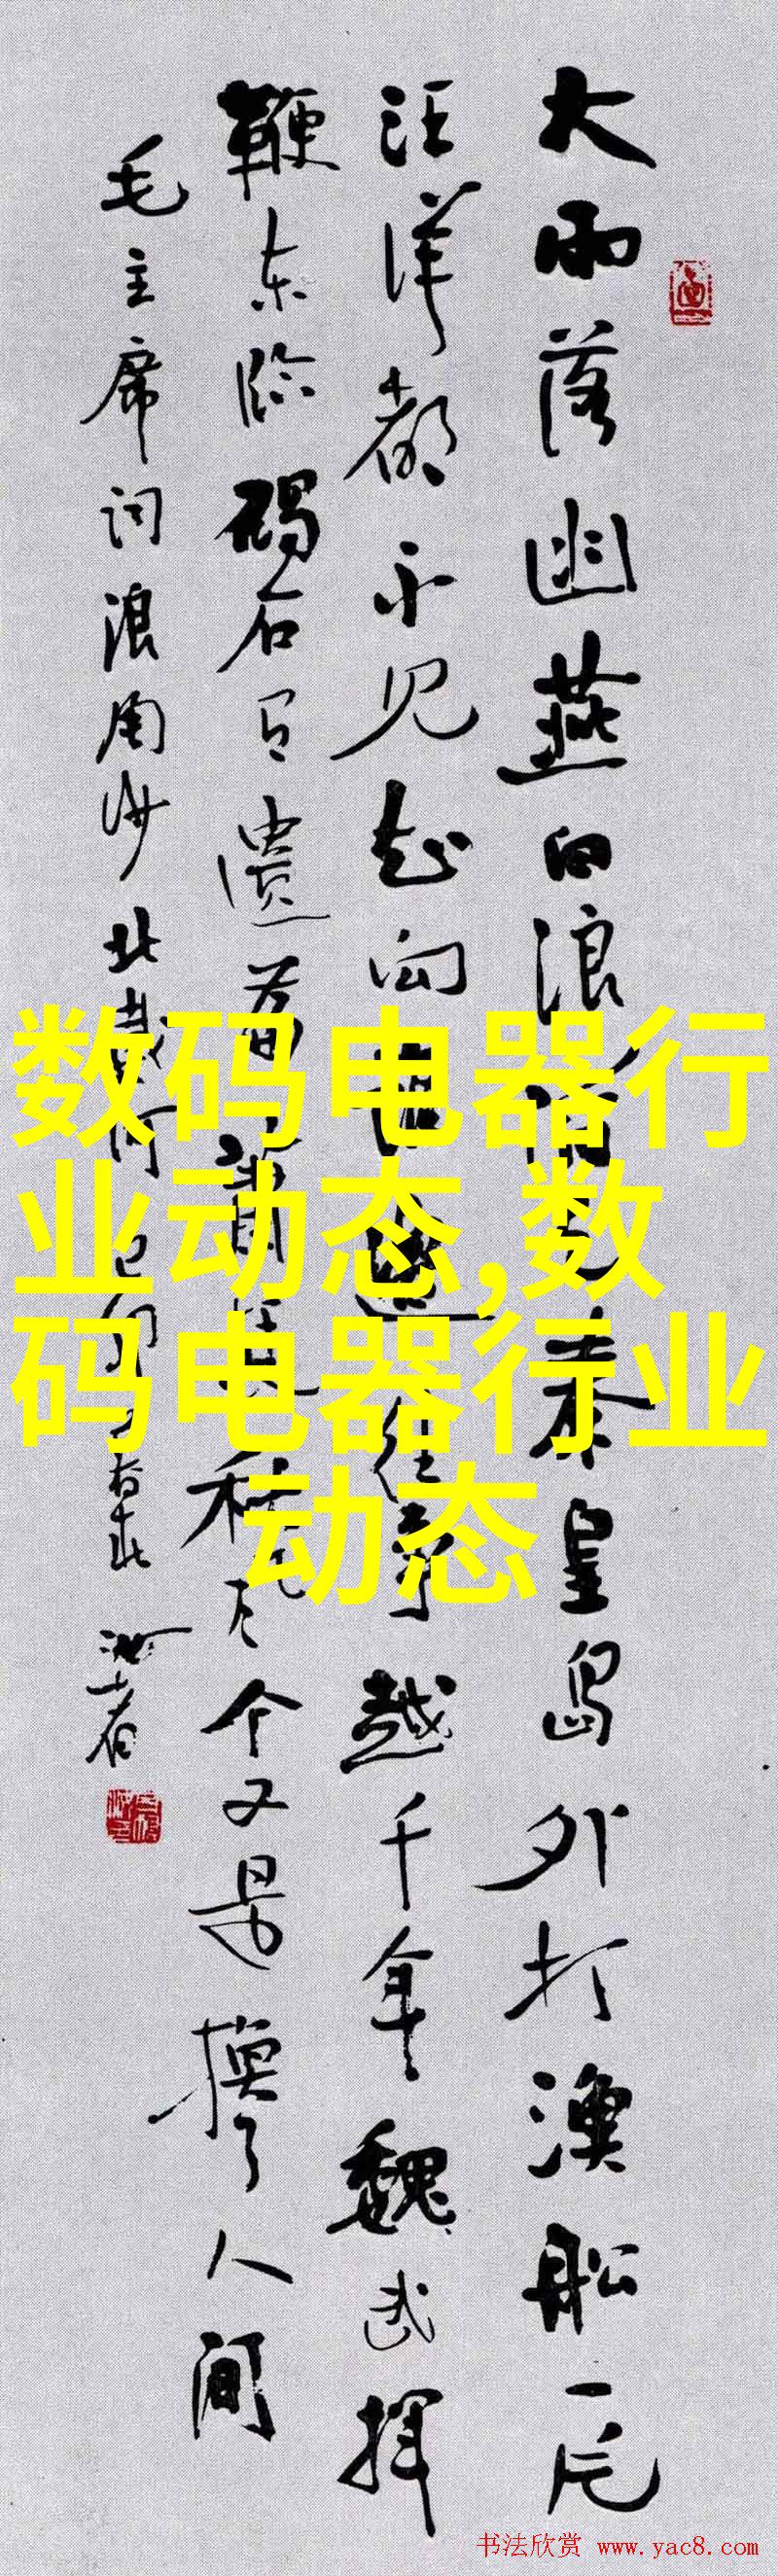 大雨落幽燕白浪滔天秦皇岛外打漁船一片
汪洋都不见知向谁邊往事越千年魏武挥
鞭东临碣石有遗篇萧瑟秋风今又是换了人间
毛主席词浪淘沙北戴河
数码电器行
业动态,数
码电器行业
动态
书法欣赏 www.yac8.com